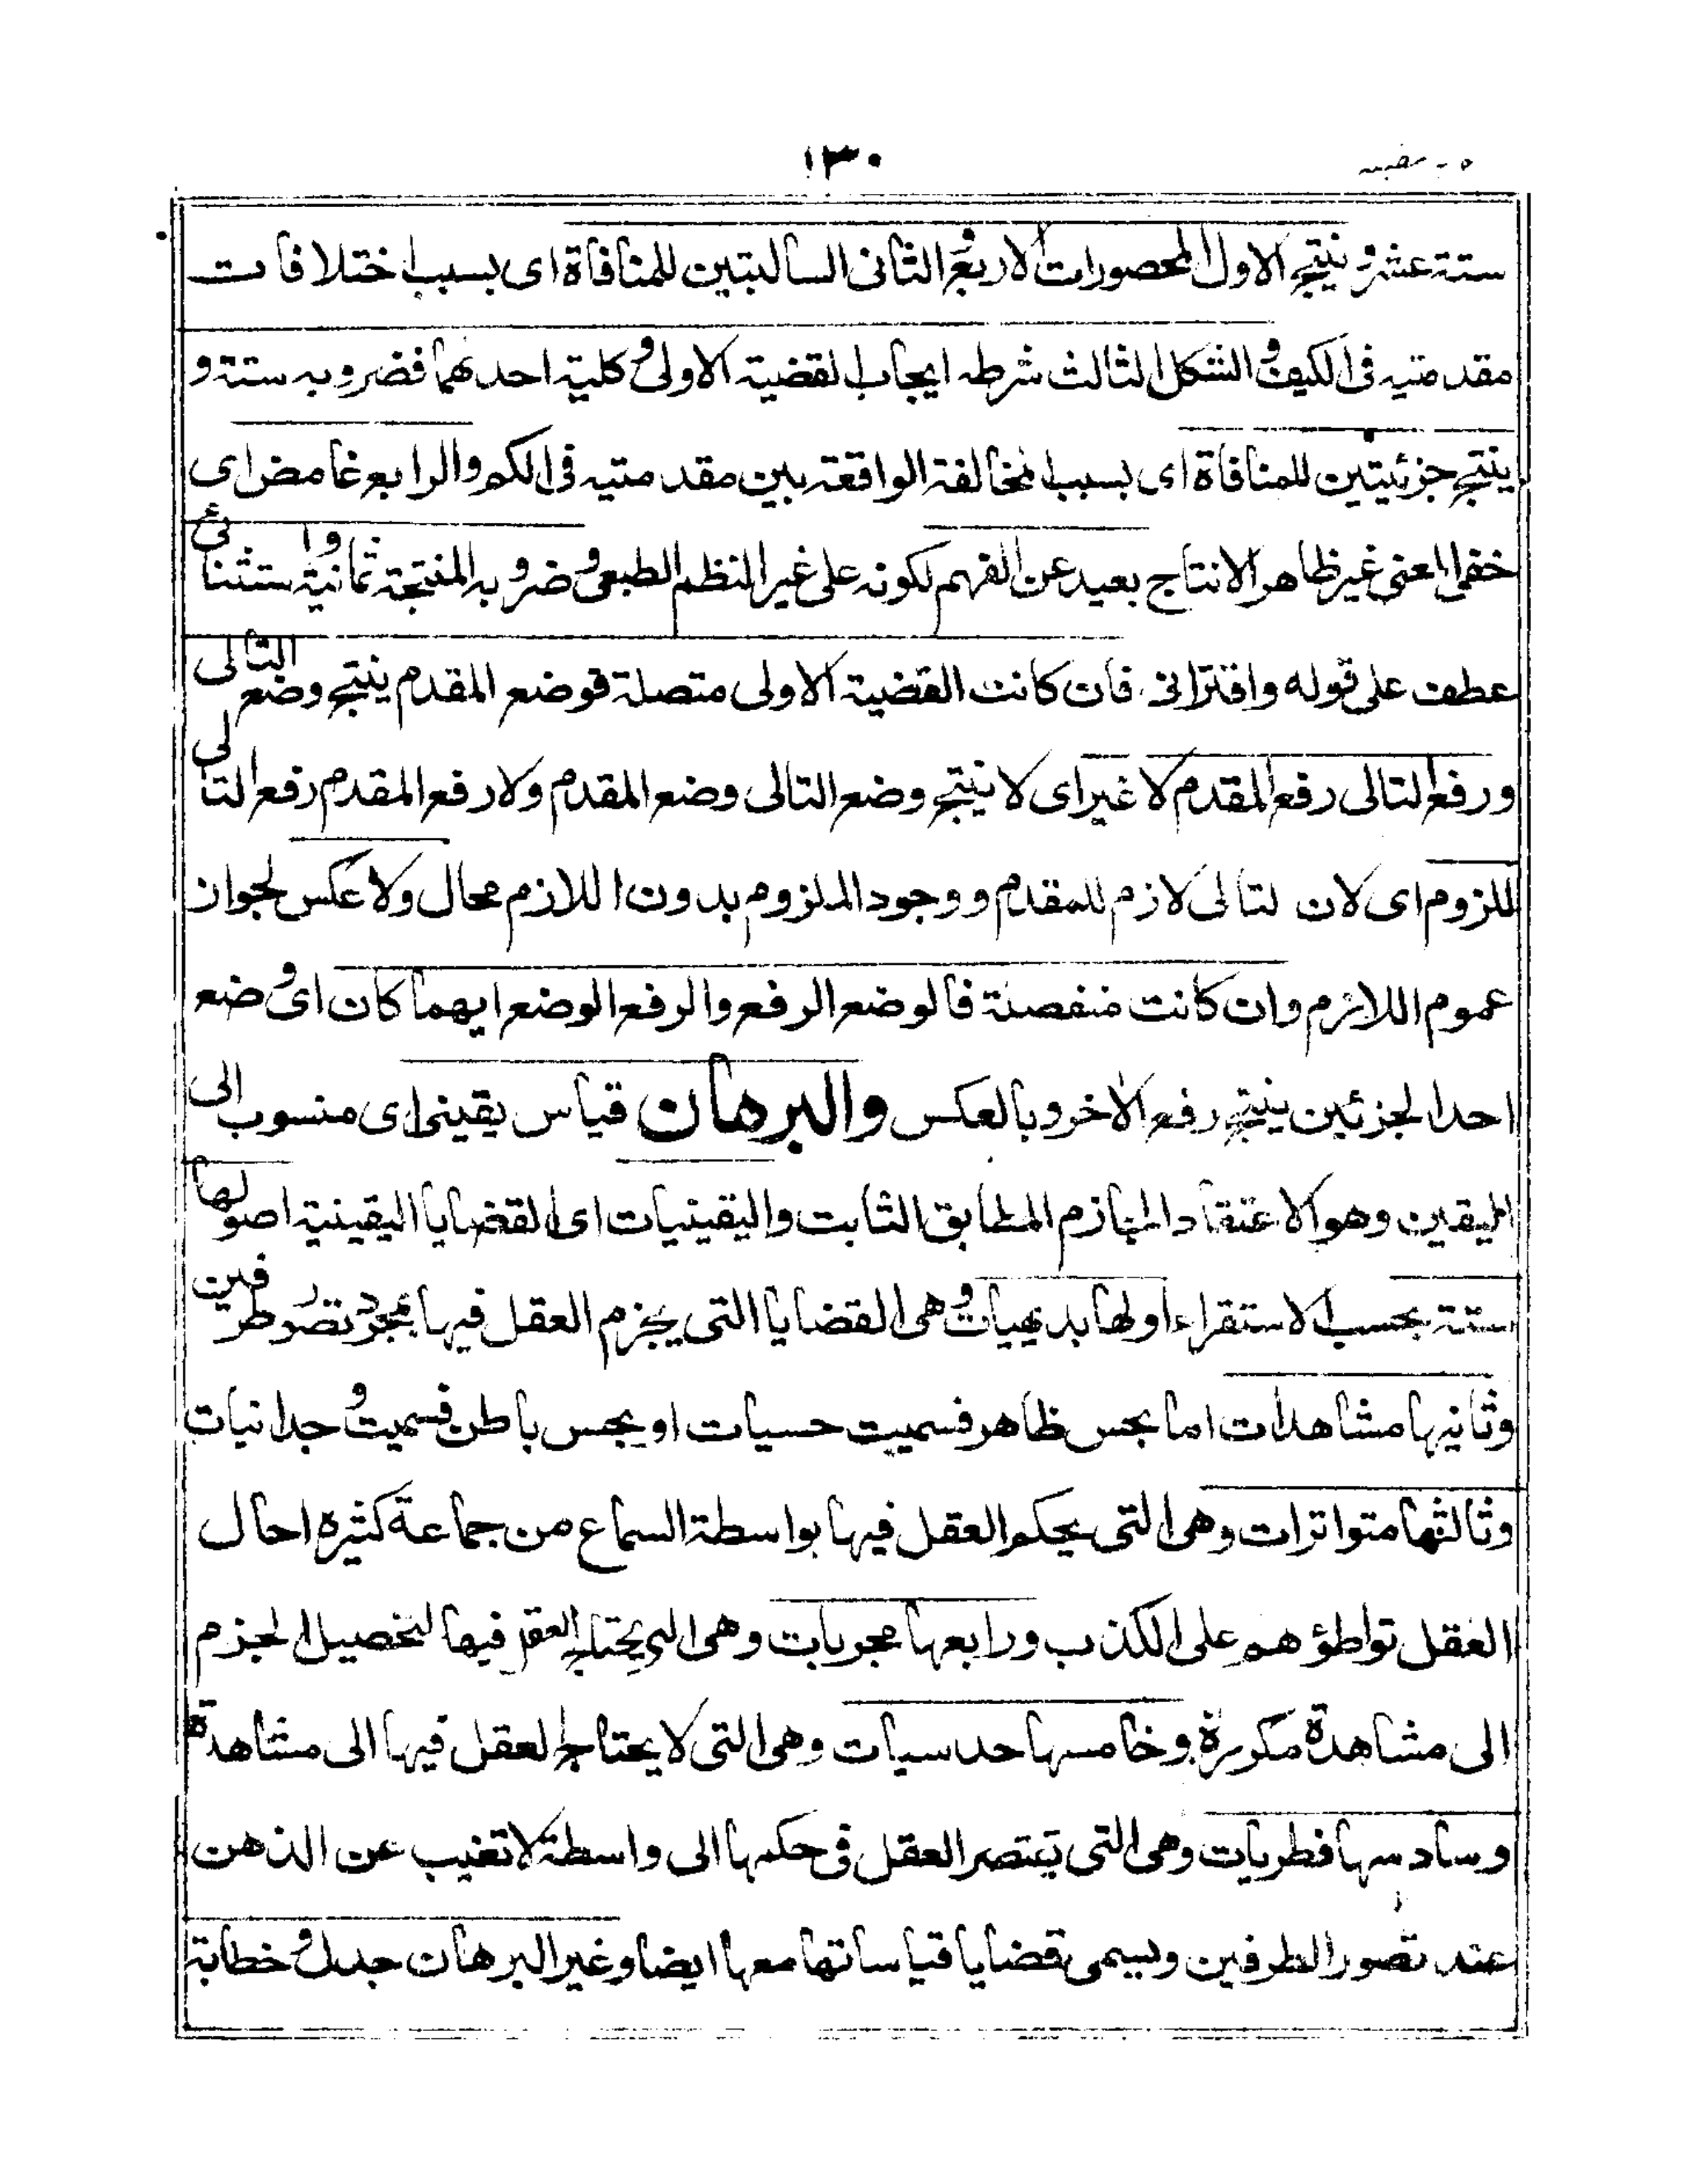 ١٣٠
ستة عشر و ينتج الاول المحصورات الاربع و الثانى السالبتين للمنافاة اى بسبب اختلافات
مقدمتيه فى الكيف و الشكل الثالث شرطه ايجاب القضية الاولى و كلية احدهما فضروبه ستة و
ينتج جزئيتين للمنافاة اى بسبب المخالفة الواقعة بين مقدمتيه فى الكم والرابع غامض اى
خفى المعنى غير ظاهر الانتاج بعيد عن الفهم لكونه على غير النظم الطبعى و ضروبه المنتجة ثمانية و استثنائى
عطف على قوله واقترانى فان كانت القضية الاولى متصلة فوضع المقدم ينتج وضع التالى
ورفع التالى رفع المقدم لا غير اى لا ينتج وضع التالى وضع المقدم ولا رفع المقدم رفع التالى
للزوم اى لان لتالى لازم للمقدم ووجود الملزوم بدون اللازم محال ولا عكس لجواز
عموم اللازم وان كانت منفصلة فالوضع الرفع والرفع الوضع ايهما كان اى وضع
احد الجزئين ينتج رفع الاخر وبالعكس والبرهان قياس يقينى اى منسوب الى
اليقين وهو الاعتقاد الجازم المطابق الثابت واليقينيات اى القضايا اليقينية اصولها
ستة بحسب الاستقراء اولها بديهيات و هى القضايا التى يجزم العقل فيها بمجرد تصور طرفين
وثانيها مشاهدات اما بحس ظاهر فسميت حسيات او بحس باطن فسميت وجدانيات
وثالثها متواترات وهى التى يحكم العقل فيها بواسطة السماع من جماعة كثيره احال
العقل تواطؤهم على الكذب ورابعها مجربات وهى التى يحتاج العقل فيها لتحصيل الجزم
الى مشاهدة مكررة وخامسها حدسيات وهى التى لا يحتاج العقل فيها الى مشاهدة
وسادسها فطريات وهى التى يقتصر العقل فى حكمها الى واسطة لا تغيب عن الذهن
عند تصور الطرفين ويسمى قضايا قياساتها معها ايضا وغير البرهان جدل و خطابة